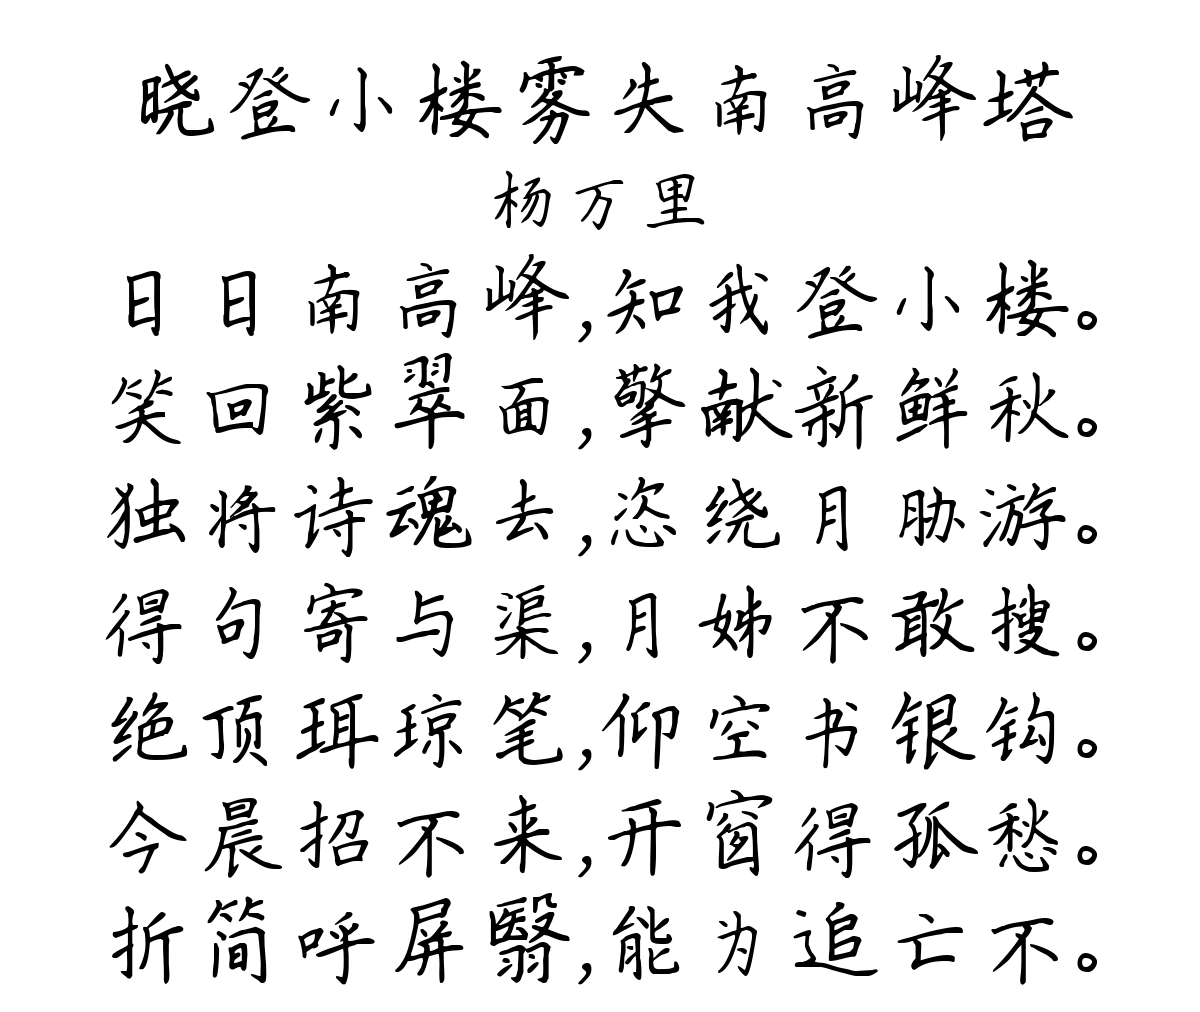 晓登小楼雾失南高峰塔
杨万里
日日南高峰,知我登小楼。
笑回紫翠面,擎献新鲜秋。
独将诗魂去,恣绕月胁游。
得句寄与渠,月姊不敢搜。
绝顶珥琼笔,仰空书银钩。
今晨招不来,开窗得孤愁。
折简呼屏翳,能为追亡不。